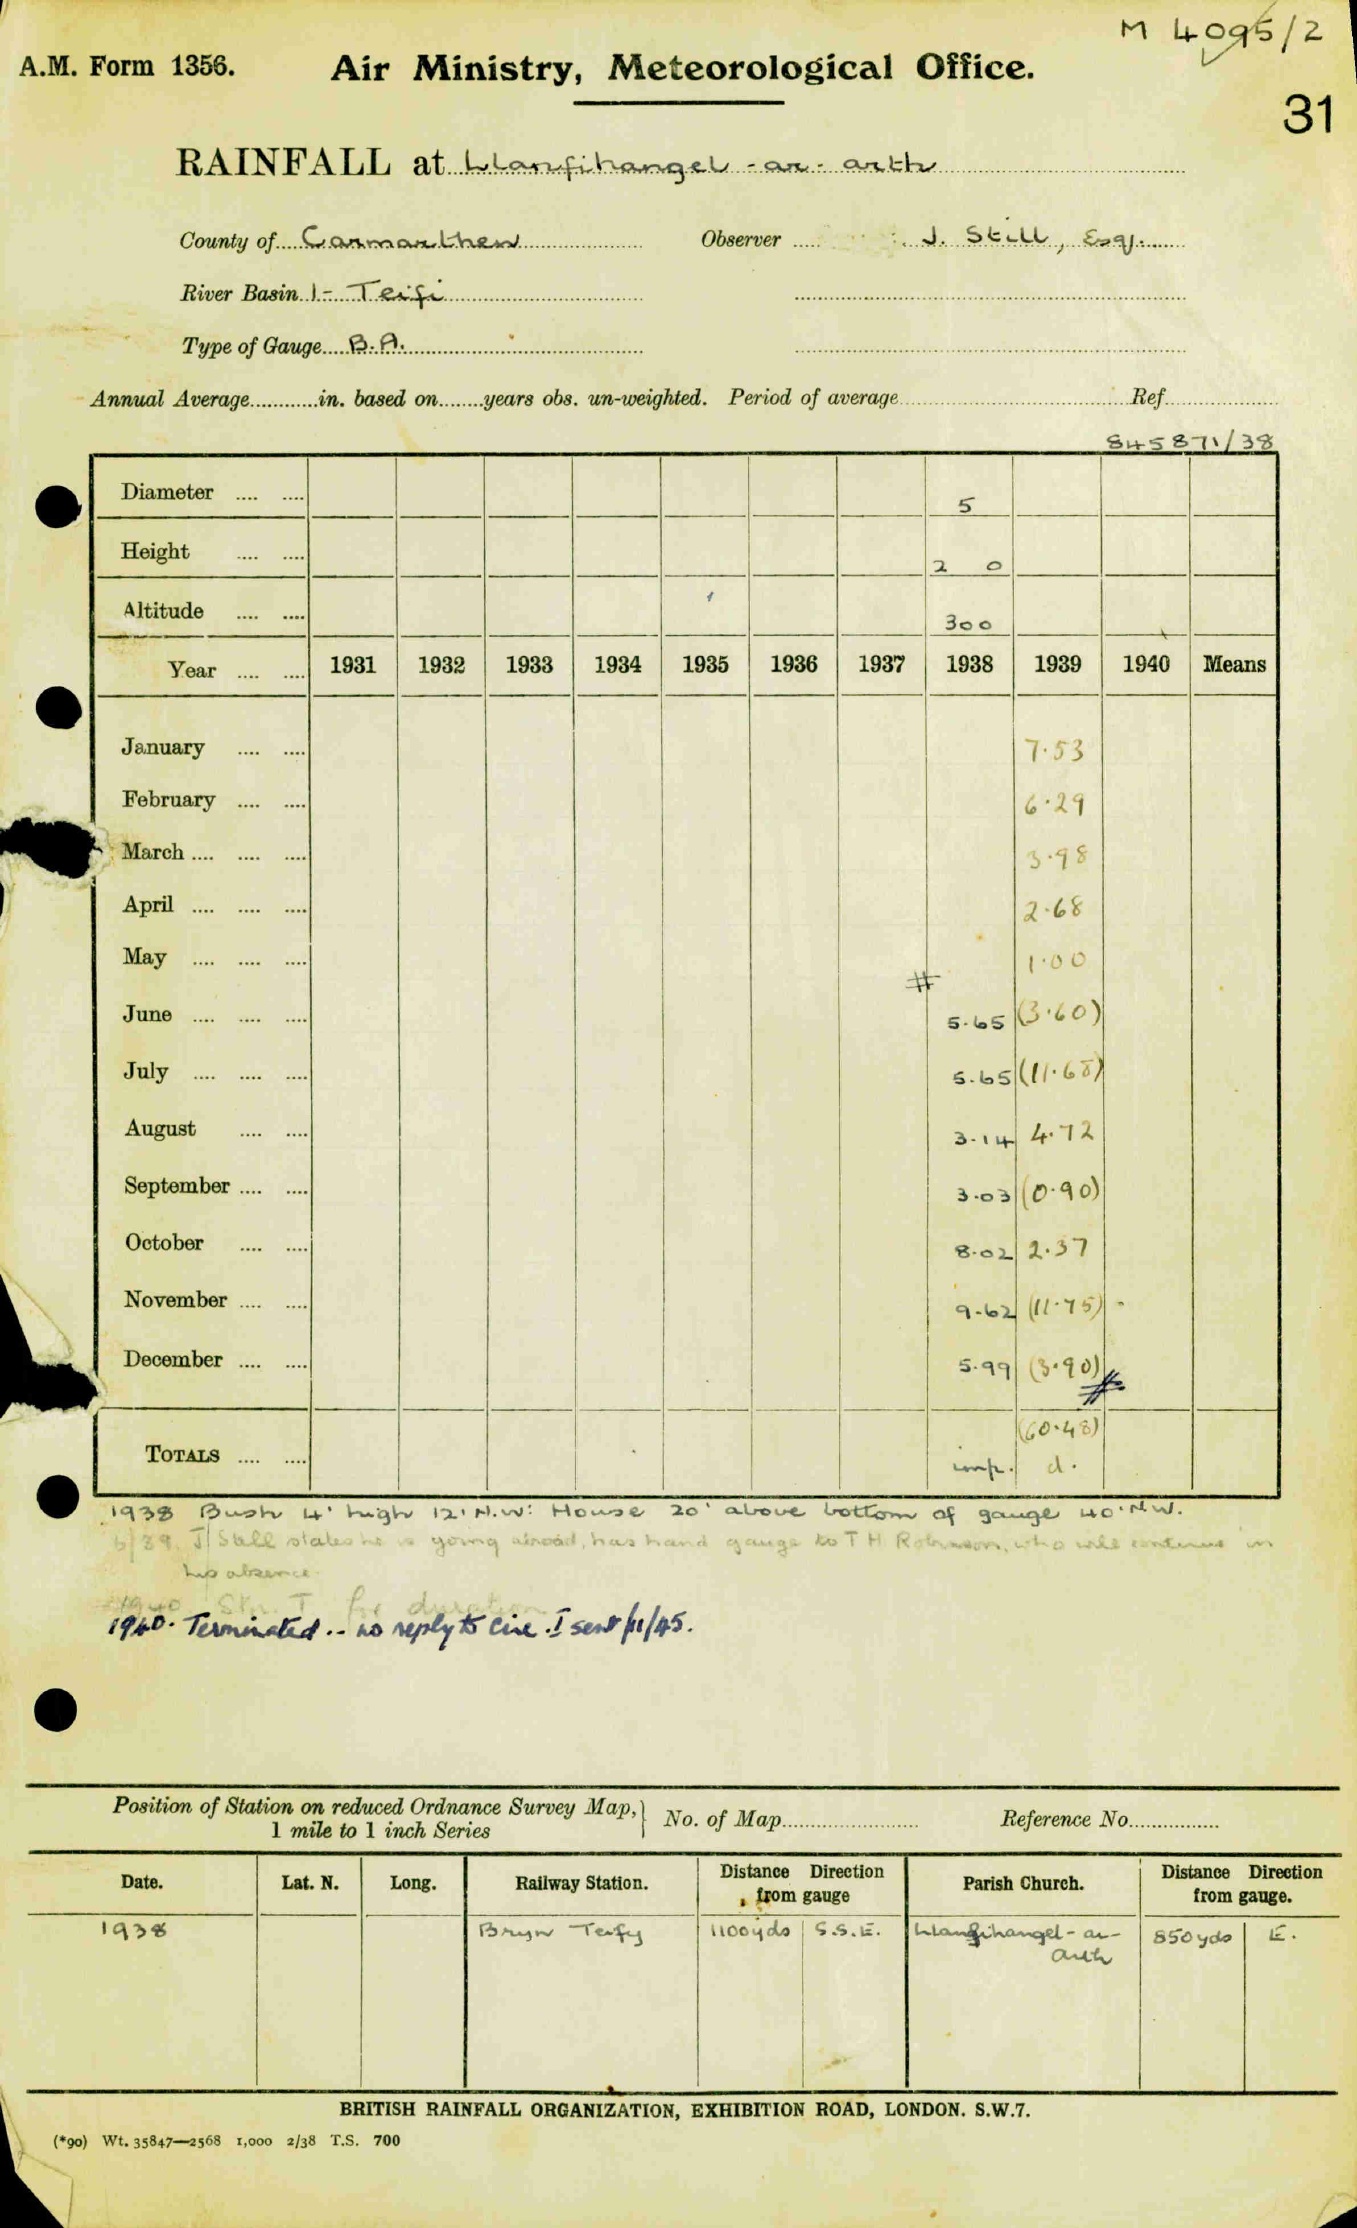 M 4095/2
A.M. Form 1356. Air Ministry, Meteorological Office.
31
RAINFALL at Llanfihangel-ar-arth
County of Carmarthen Observer J. Still, Esq.
River Basin 1- Teifi
Type of Gauge B.A.
Annual Average in. based on years obs. un-weighted. Period of average Ref
845871/38
Diameter 5
Height 2 0
Altitude 300
Year 1931 1932 1933 1934 1935 1936 1937 1938 1939 1940 Means
January 7.53
February 6.29
March 3.98
April 2.68
May 1.00
#
June 5.65 (3.60)
July 5.65 (11.68)
August 3.14 4.72
September 3.03 (0.90)
October 8.02 2.37
November 9.62 (11.75)
December 5.99 (3.90)
#
(60.48)
TOTALS imp. d.
1938 Bush 4' high 12' N.W: House 20' above bottom of gauge 40' N.W.
6/39. J Still states he is going abroad, has hand gauge to T H Robinson, who will continue in
his absence.
1940 T for duration
1940. Terminated .. no reply to circ. I sent /11/45.
Position of Station on reduced Ordnance Survey Map, No. of Map Reference No.
1 mile to 1 inch Series
Date. Lat. N. Long. Railway Station. Distance Direction from gauge Parish Church. Distance Direction from gauge.
1938 Bryn Teify 1100yds S.S.E. Llanfihangel-ar- 850yds E.
arth
BRITISH RAINFALL ORGANIZATION, EXHIBITION ROAD, LONDON. S.W.7.
(*90) Wt. 35847—2568 1,000 2/38 T.S. 700